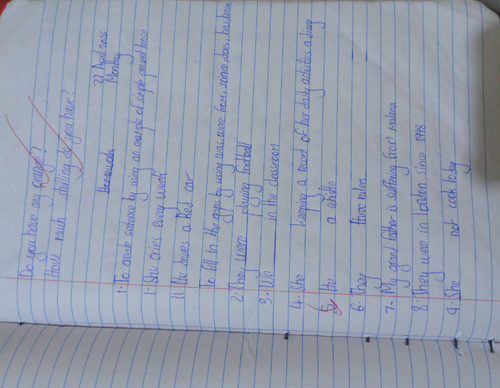 Do you have any orange?
How much shilling do you have?
27 April 2026
Monday
Homework
1. To create sentence by using an example of simple present tense
1. She cries every week
11. He drives a Red car
To fill in the gaps by using was, were, has been
2. They were playing football
3. We in the classroom
4. She keeping a record of her daily activities a diary
5. He a white
6. They three rulers
7. My grand father is suffering from malaria
8. They were in London since 1998
9. She not cook today